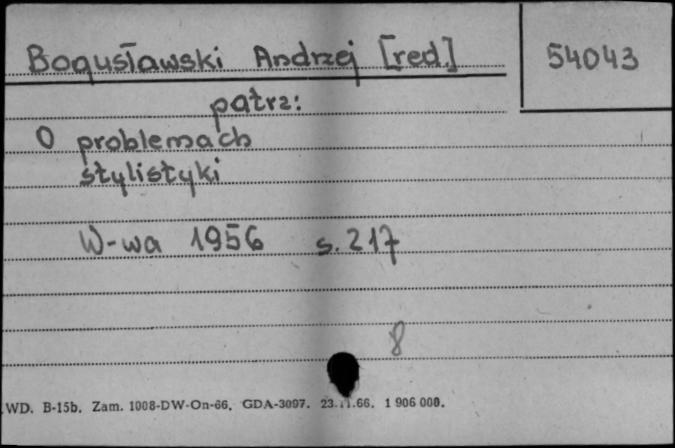 Bogusławski Andrzej [red.]
54043
patrz:
O problemach
stylistyki
W-wa 1956 s. 217
8
WD. B-15b. Zam. 1008-DW-On-66. GDA-3097. 23.11.66. 1 906 000.